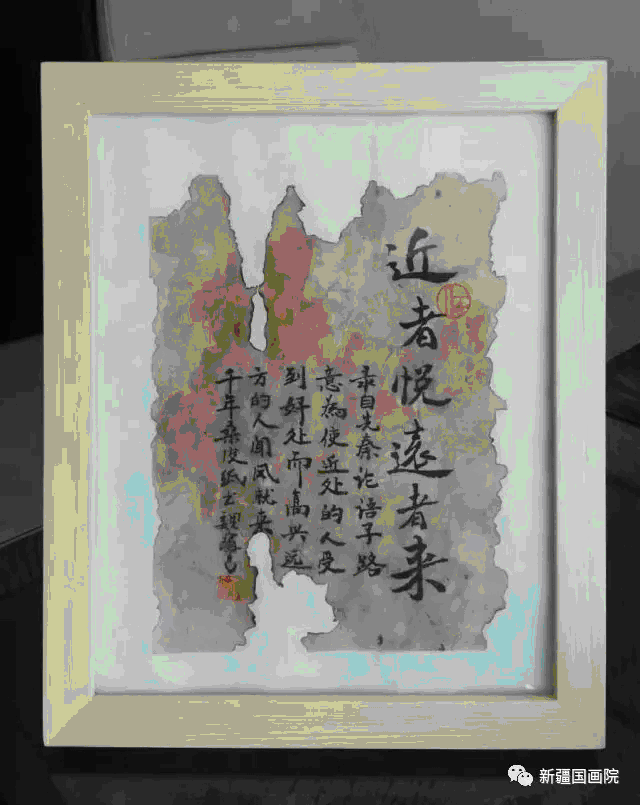 近者悦远者来
录自先秦论语子路
意为使近处的人受
到好处而高兴远
方的人闻风就来
千年桑皮纸书
新疆国画院